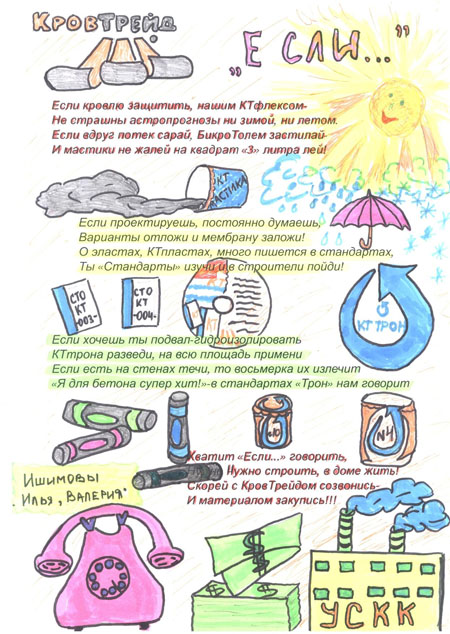 КРОВТРЕЙД
„ЕСЛИ..."
Если кровлю защитить, нашим КТфлексом-
Не страшны астропрогнозы ни зимой, ни летом.
Если вдруг потек сарай, БикроТолем застилай-
И мастики не жалей на квадрат «3» литра лей!
КТ
Если проектируешь, постоянно думаешь,
Варианты отложи и мембрану заложи!
О эластах, КТпластах, много пишется в стандартах,
Ты «Стандарты» изучи и в строители пойди!
СТО
КТ
-003-
СТО
КТ
-004-
КТ ТРОН
Если хочешь ты подвал-гидроизолировать
КТтрона разведи, на всю площадь примени
Если есть на стенах течи, то восьмерка их излечит
«Я для бетона супер хит!»-в стандартах «Трон» нам говорит
Хватит «Если...» говорить,
Нужно строить, в доме жить!
Скорей с КровТрейдом созвонись-
И материалом закупись!!!
Ишимовы
Илья, Валерия
УСКК